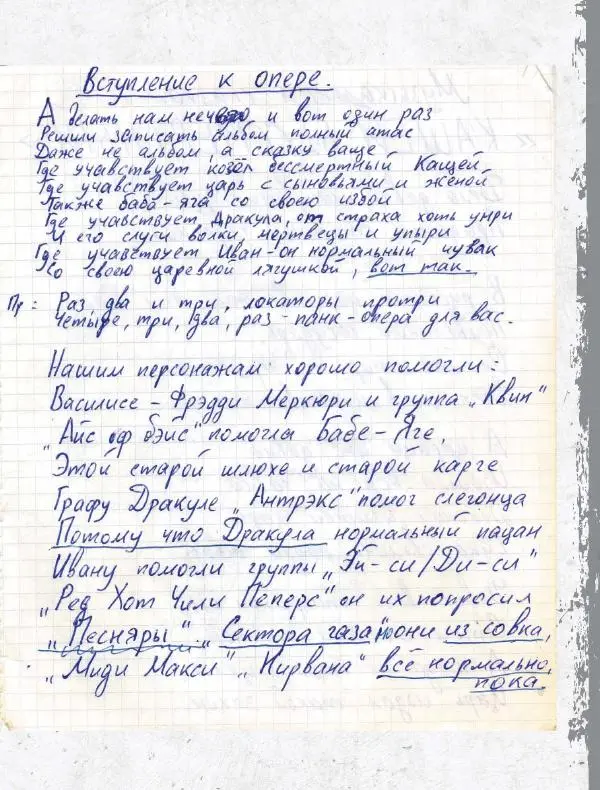 Вступление к опере.
А делать нам нечего и вот один раз
Решили записать альбом полный атас
Даже не альбом, а сказку ваще
Где учавствует козёл бессмертный Кащей
Где учавствует царь с сыновьями и женой
Также баба-яга со своею избой
Где учавствует Дракула, от страха хоть умри
И его слуги волки мертвецы и упыри
Где учавствует Иван-он нормальный чувак
Со своею царевной лягушкой, вот так.
Пр: Раз, два и три, локаторы протри
Четыре, три, два, раз-панк-опера для вас.
Нашим персонажам хорошо помогли:
Василисе-Фрэдди Меркюри и группа „Квин"
„Айс оф бэйс" помогла Бабе-Яге,
Этой старой шлюхе и старой карге
Графу Дракуле „Антрэкс" помог слегонца
Потому что Дракула нормальный пацан
Ивану помогли группы „Эй-си/Ди-си"
„Ред Хот Чили Пеперс" он их попросил
„Песняры" „Сектора газа" они из совка,
„Миди Макси" „Нирвана" всё нормально
пока.